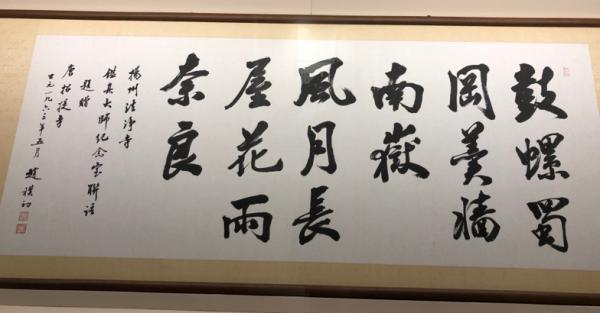 鼓螺蜀
岡羹牆
南嶽
風月長
屋花雨
奈良
揚州法淨寺
鑑真大師紀念堂聯語
題贈
唐招提寺
公元一九六三年五月 趙樸初